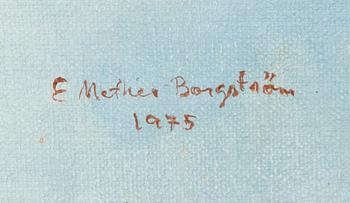 E Mether Borgström
1975